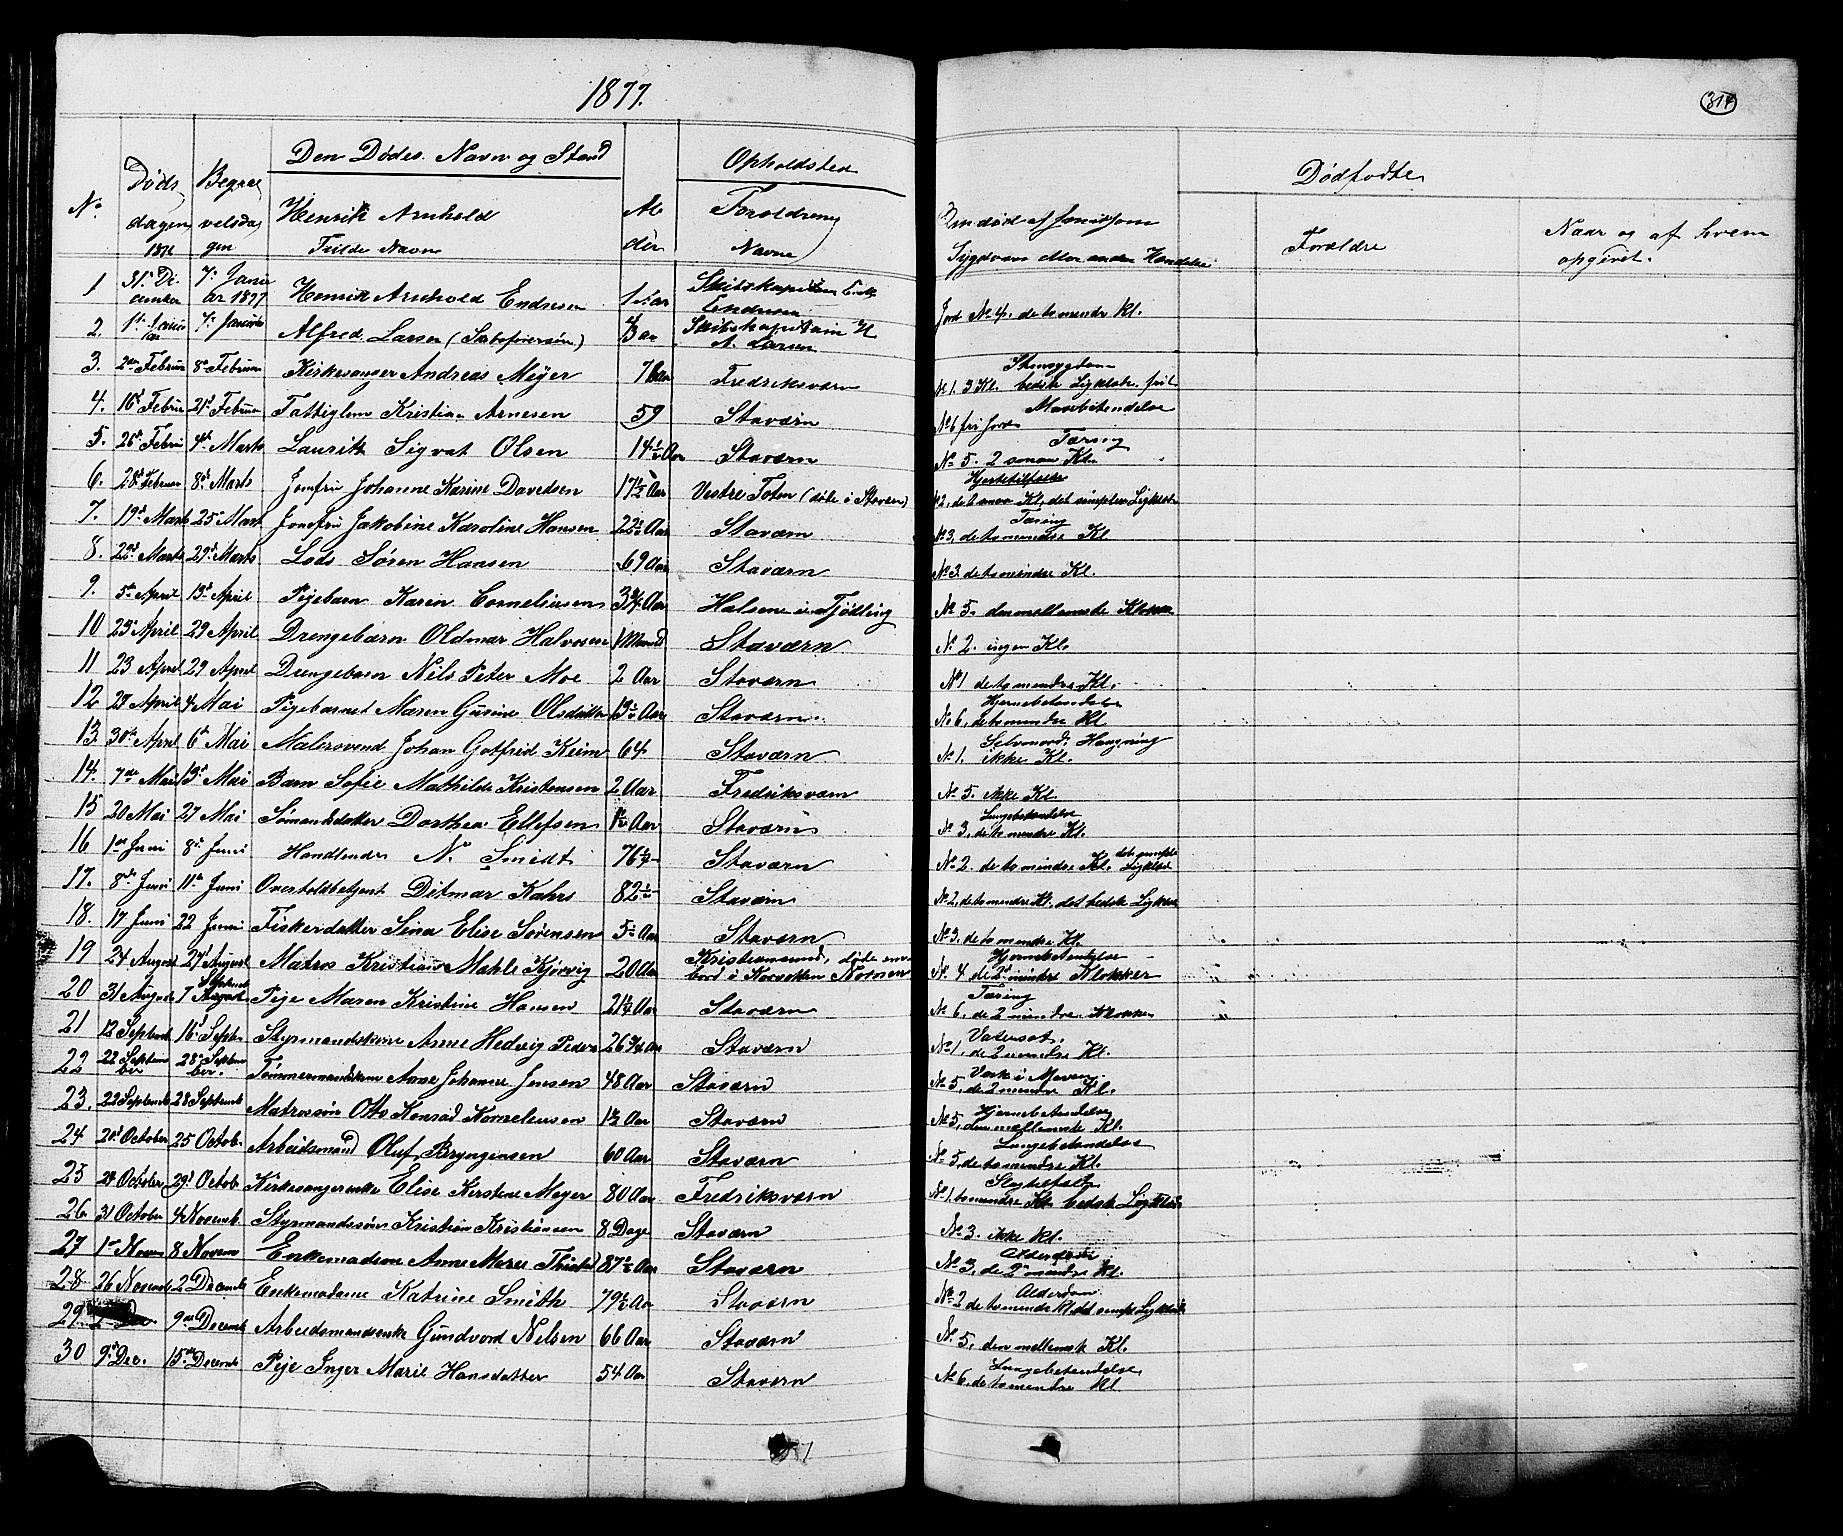 1877.
314
Den Dødes Navn og Stand
Opholdsted
Dødfødte
No
Døds
dagen
1876
Begra
velsda
gen
Henrik Arnhold
Fulde Navn
Al
der
Forældrenes
Navne
Sygdom eller anden Hændelse
Forældre
Naar og af hvem
opgivet.
1 31 De
cember 7 Janu
ar 1877 Henrik Arnhold Endresen 1 Aar Skibskaptein
Endresen Jord No 4. de to mindre Kl.
2. 1 Januar 7 Januar Alfred Larsen (Skibsførersøn) Aar Skibskaptein H
A. Larsen
3. 2 Februar 8 Februar Kirkesanger Andreas Meyer 76 Aar Fredriksværn No 1. 3 Kl. bedste Ligklæde frit
4. 16 Febru 21 Februar Fattiglem Kristian Arnesen 59 Staværn Mavebetændelse
No 6 fri Jord
5. 26 Febru 4 Marts Laurits Sigvat Olsen 14½ Aar Staværn Tæring
No 5. 2 smaa Kl.
6. 28 Februar 8 Marts Jomfru Johanne Karine Davidsen 17½ Aar Vestre Toten (døde i Stavern) Hjertetilfælde
No 2, de to smaa Kl. det simplere Ligklæde
7. 19 Marts 25 Marts Jomfru Jakobine Karoline Hansen 22½ Aar Staværn Tæring
No 3, de to mindre Kl.
8. 22 Marts 29 Marts Lods Søren Hansen 69 Aar Staværn No 3 de to mindre Kl.
9. 5 April 13 April Pigebarn Karen Corneliusen 3¾ Aar Halsene i Tjødling No 5. den mellemste Klokke
10 23 April 29 April Drengebarn Oldmar Halvorsen 1 Maaned Staværn No 2. ingen Kl.
11 23 April 29 April Drengebarn Nils Peter Moe 2 Aar Staværn No 1 de to mindre Kl.
12 27 April 4 Mai Pigebarnet Maren Gusine Olsdatter Aar Staværn. Hjernebetændelse
No 6, de to mindre Kl
13. 30 April 6 Mai Malersvend Johan Gotfred Keim 64 Staværn Selvmord. Hængning
No 1. ikke Kl.
14. 7 Mai 13 Mai Barn Sofie Mathilde Kristensen 2 Aar Fredriksværn No 5. ikke Kl.
15 20 Mai 27 Mai Sømandsdatter Dorthea Ellefsen 1½ Aar Staværn Lungebetændelse
No 3, de to mindre Kl.
16 1 Juni 8 Juni Handlende N. Smidt 76½ Staværn No 2. de to mindre Kl. det simple
Ligklæde
17. 8 Juni 11 Juni Overtoldbetjent Ditmar Kahrs 82½ Staværn No 2, de to mindre Kl. det bedste Ligklæde
18. 17 Juni 22 Juni Fiskerdatter Sina Elise Sørensen 5½ Aar Staværn No 3, de to mindre Kl.
19 24 August 27 August Matros Kristian Mahle Kjørvig 20 Aar Kristiansund, døde om
bord i Korvetten Nornen Hjernebetændelse
No. 4 de 2 mindre Klokker
20 31 August 7 September Pige Maren Kristine Hansen 21½ Aar Staværn Tæring
No 6, de 2 mindre Klokker
21 12 Septemb 16 Septb. Styrmandskone Anne Hedvig Peders 26¾ Aar Staværn Vatersot
No 1, de 2 mindre Kl.
22 22 Septem
ber 28 Septem
ber. Tømmermandskone Anne Johanne Jensen 48 Aar Staværn Værk i Maven
No 5, de 2 mindre Kl.
23. 22 Septemb 28 Septemb Matrossøn Otto Konrad Korneliusen 1½ Aar Staværn Hjernebetændelse
No 5, den mellemste Kl.
24 20 October 25 Octob. Arbeidsmand Oluf Bryngensen 60 Aar Staværn Lungebetændelse
No 5, de to mindre Kl.
25 24 October 29 Octob. Kirkesangerenke Elise Kirstine Meyer 80 Aar Fredriksværn Slagtilfælde
No 1. to mindre Kl. bedste Ligklæde
26 31 October 4 Novemb. Styrmandssøn Kristian Kristiansen 8 Dage Staværn No 3. ikke Kl.
27 1 Novem 8 Novem Enkemadam Anne Marie Thisted 87½ Aar Staværn Alderdom
No 3, de 2 mindre Kl.
28 26 Novemb 2 Decemb Enkemadame Katrine Smith 79½ Aar Staværn Alderdom
No 2 de to mindre Kl. det simple Ligklæde
29 9 Decemb Arbeidsmandsenke Gundvord Nilsen 66 Aar Staværn No. 5. den mellemste Kl.
30 9 Dec. 15 Decemb Pige Inger Marie Hansdatter 54 Aar Staværn Lungebetændelse
No 6, de to mindre Kl.